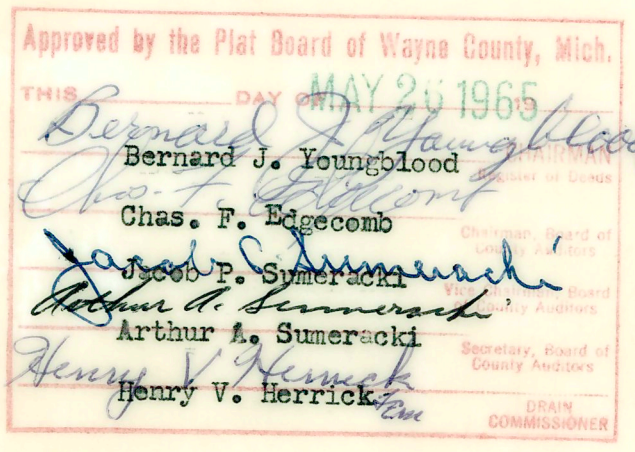 Approved by the Plat Board of Wayne County, Mich.
THIS DAY OF MAY 26 1965 19
Bernard J. Youngblood
CHAIRMAN
Bernard J. Youngblood
Register of Deeds
Chas. F. Edgecomb
Chas. F. Edgecomb
Chairman, Board of
County Auditors
Jacob P. Sumeracki
Jacob P. Sumeracki
Vice Chairman, Board
of County Auditors
Arthur A. Sumeracki
Arthur A. Sumeracki
Secretary, Board of
County Auditors
Henry V. Herrick
Henry V. Herrick
DRAIN
COMMISSIONER